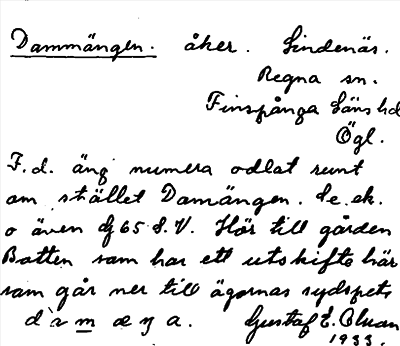 Dammängen. åker. Lindenäs.
Regna sn.
Finspånga läns hd
Ögl.
F.d. äng numera odlat runt
om stället Damängen. Se. ek.
o även 65 S.V. Hör till gården
Botten som har ett utskifte här
som går ner till ägornas sydspets
Gustaf E. Olsson
1933.